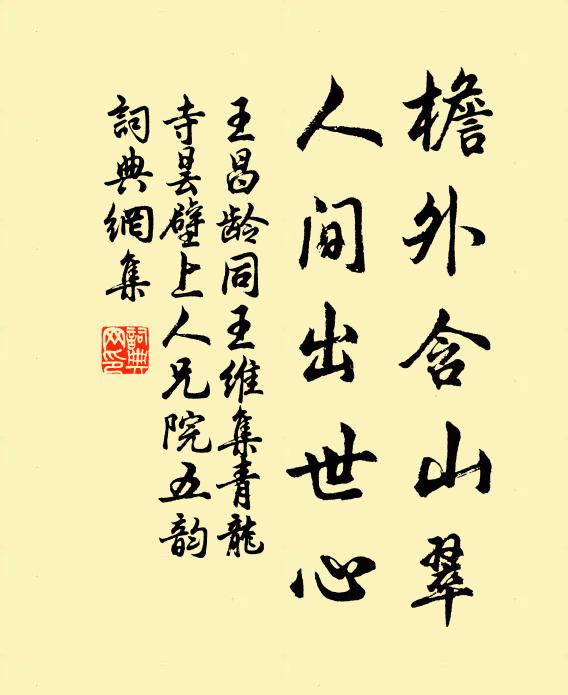 檐外含山翠
人间出世心
王昌龄同王维集青龍
寺昙壁上人兄院五韵
詞典網集
詞典
网印